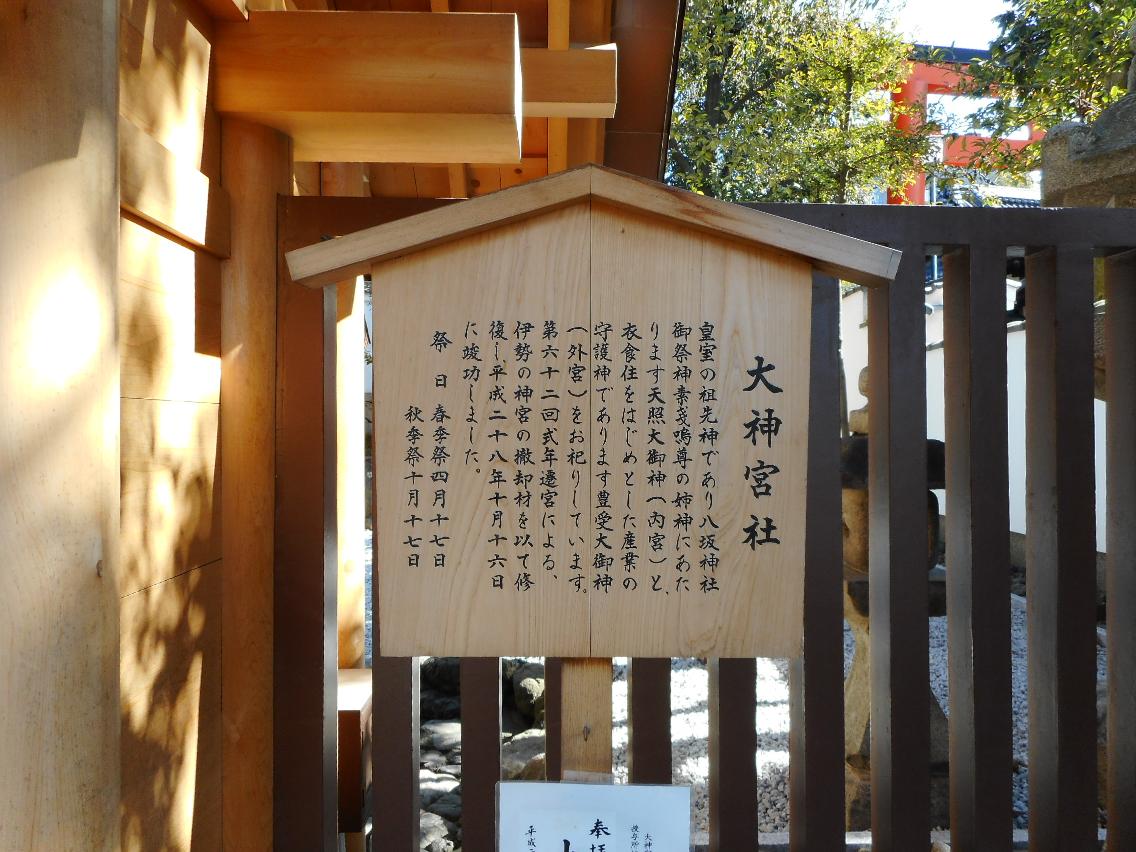 大神宮社
皇室の祖先神であり八坂神社
御祭神素戔嗚尊の姉神にあた
ります天照大御神(内宮)と、
衣食住をはじめとした産業の
守護神であります豊受大御神
(外宮)をお祀りしています。
第六十二回式年遷宮による、
伊勢の神宮の撤却材を以て修
復し平成二十八年十月十六日
に竣功しました。
祭日 春季祭四月十七日
秋季祭十月十七日
奉拝
平成